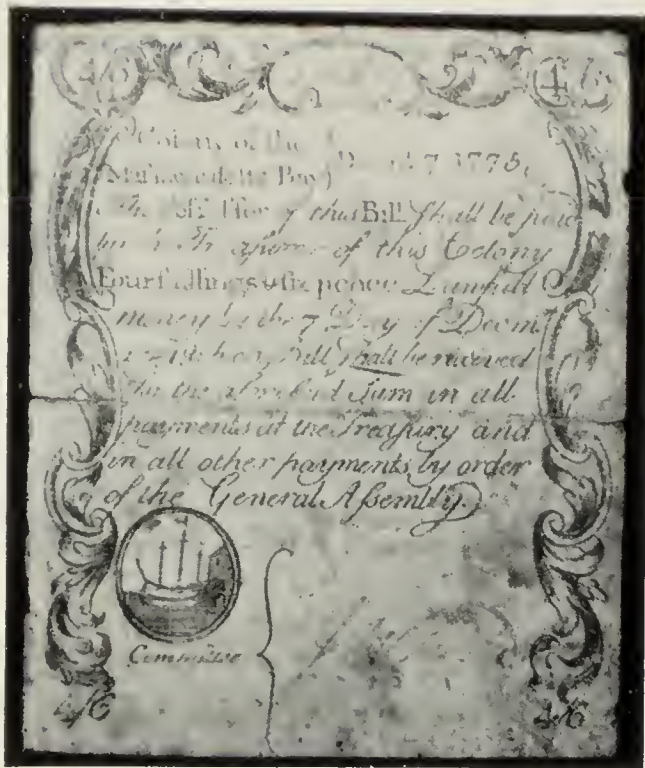 4/6 4 6
Colony of the
Massachusetts Bay) 7 1775.
of this Bill Shall be paid
of this Colony
Fourſhillings & ſix pence Lawfull
money by the 7 Day of Decm.
Bill Shall be received
for the aforeſaid Sum in all
payments at the Treaſury and
in all other payments by order
of the General Aſsembly.
Committee
4/6 4/6